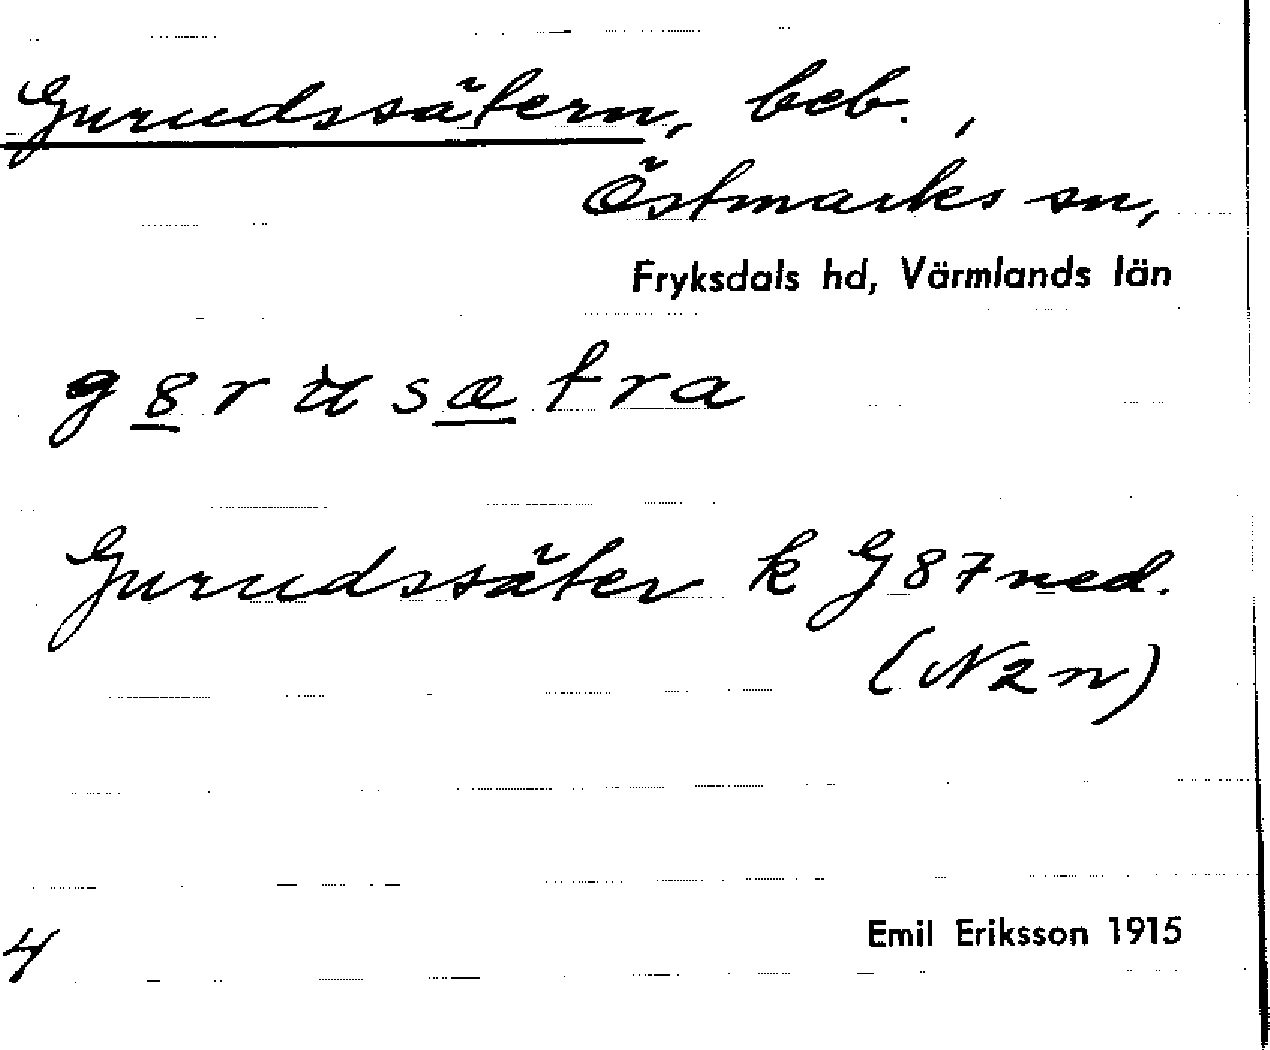 Gurudssätern, beb.,
Östmarks sn,
Fryksdals hd, Värmlands län
Gurudssäter k G87ned.
(N2n)
4
Emil Eriksson 1915